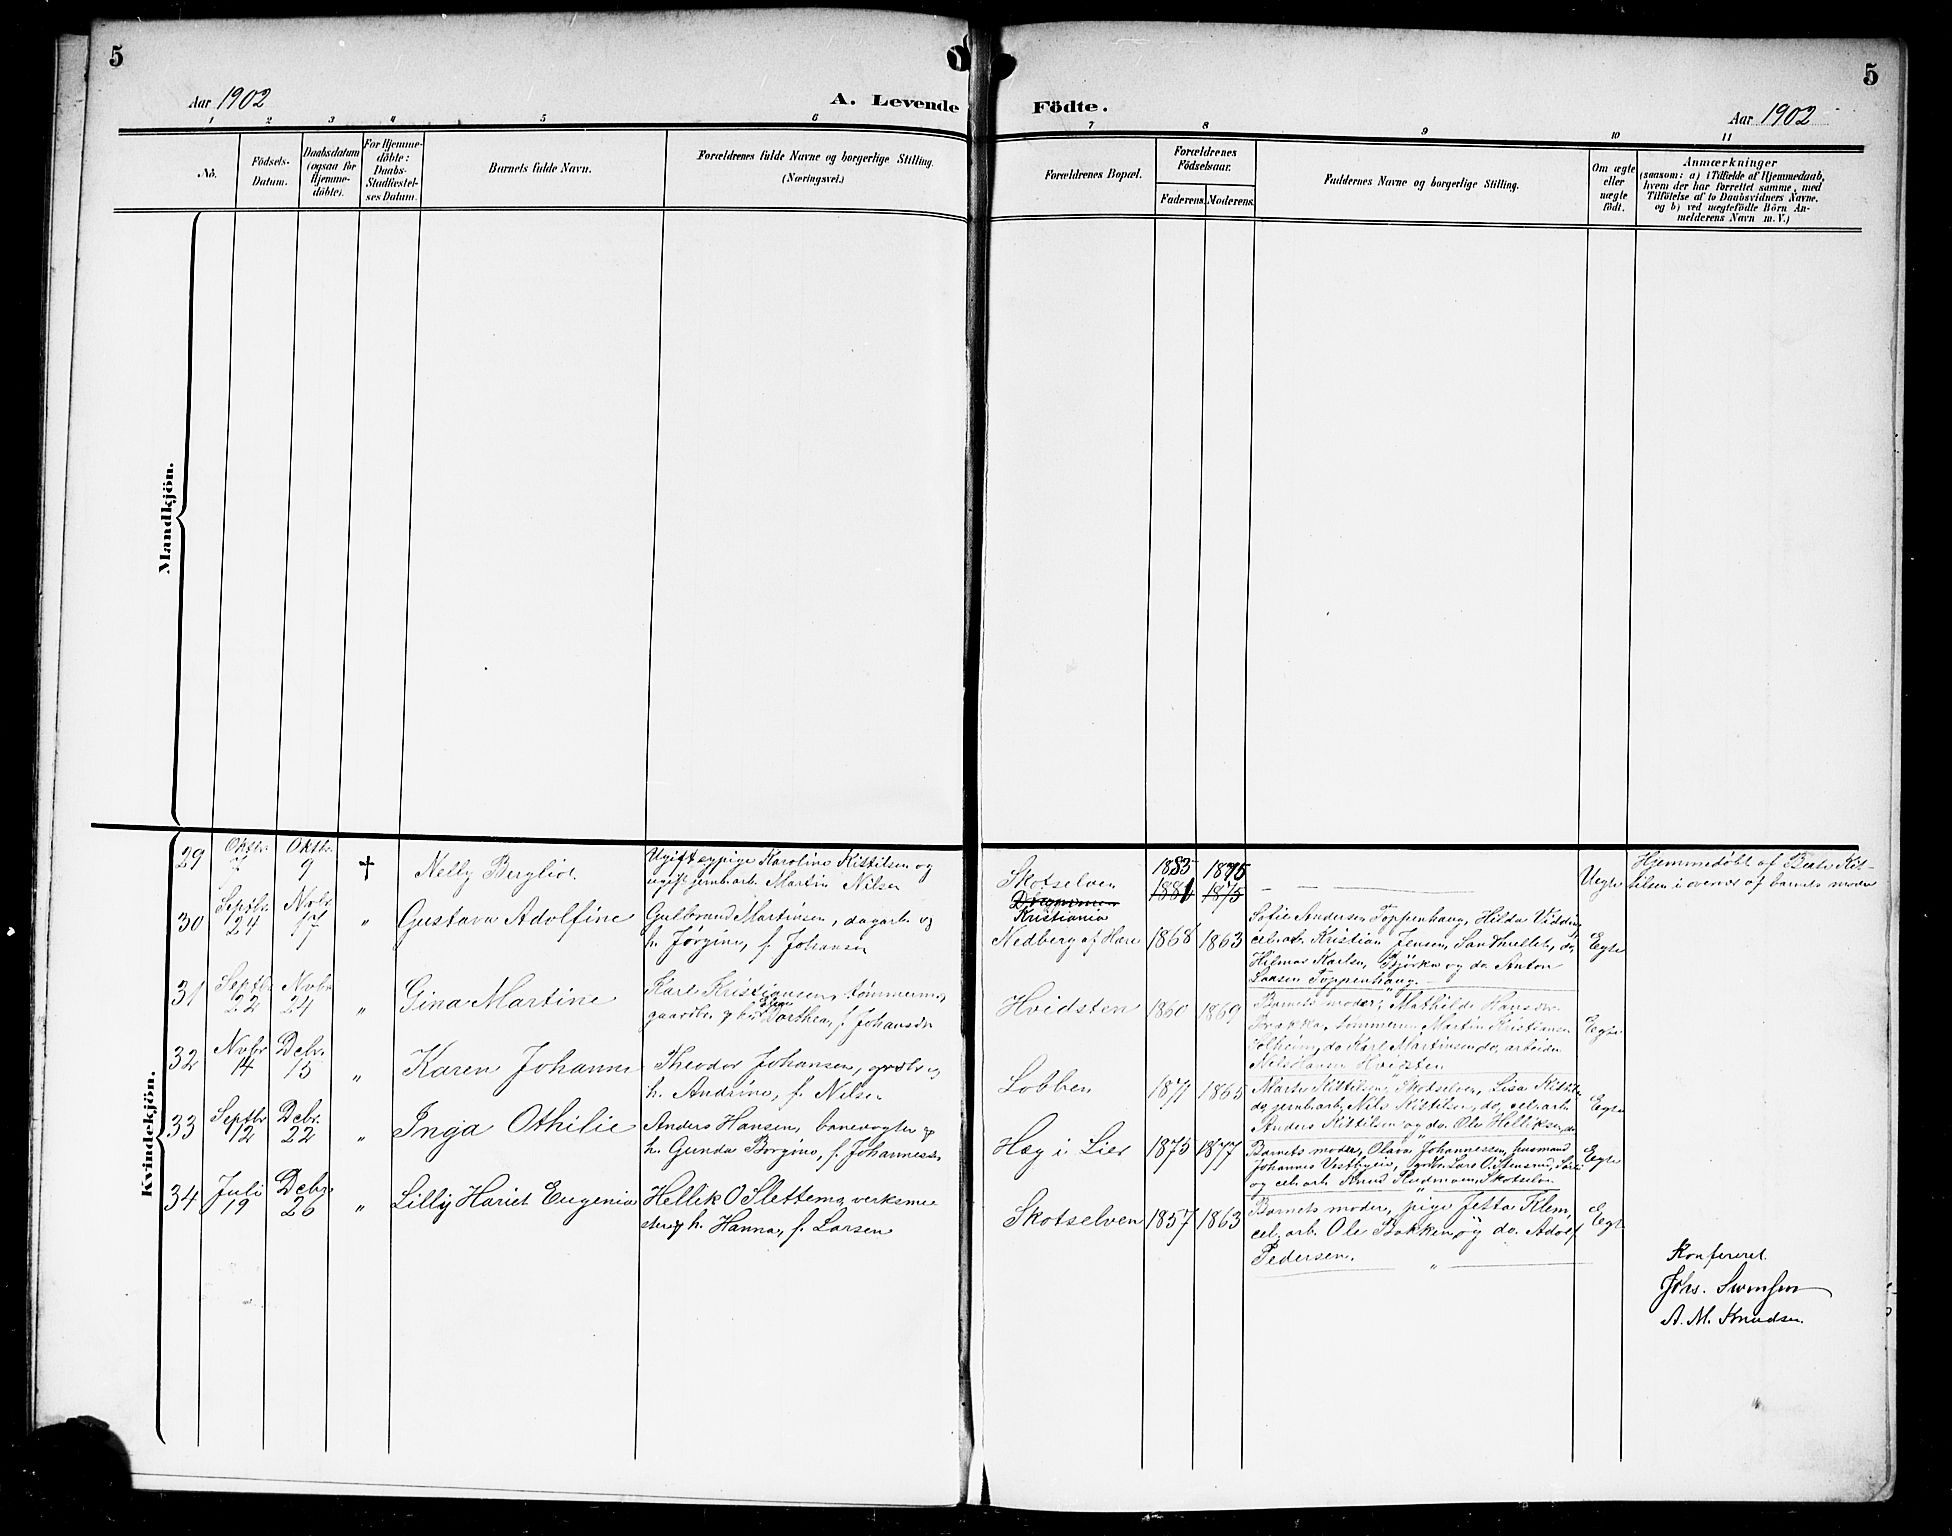 5
5
Aar 1902
A. Levende Födte.
Aar 1902
1 2 3 4 5 6 7 8 9 10 11
No.
Födsels-Datum.
Daabsdatum (ogsaa for Hjemme-döbte).
For Hjemme-döbte: Daabs-Stadfæstel-ses Datum.
Barnets fulde Navn.
Forældrenes fulde Navne og borgerlige Stilling. (Næringsvei.)
Forældrenes Bopæl.
Forældrenes Födselsaar.
Faderens. Moderens.
Faddernes Navne og borgerlige Stilling.
Om ægte eller uægte födt.
Anmærkninger
(saasom: a) i Tilfælde af Hjemmedaab, hvem der har forrettet samme, med Tilföielse af to Daabsvidners Navne, og b) ved uægtefödte Börn An-melderens Navn m. V.)
Mandkjön.
Kvindekjön.
29 Oktbr. 7 Oktbr. 9 † Nelly Bergliot
Ugift sypige Karoline Kittilsen og
ugift jernb.arb. Martin Nilsen
Skotselven
Drammen
Kristiania
1883 1875
1881 1875
— — Uegte
Hjemmedøbt af Beate Kit-
tilsen i overvær af barnets moder
30 Septbr. 24 Novbr. 17 " Gustava Adolfine
Gulbrand Martinsen, dagarb. og
h. Jørgine, f. Johansen
Nedberg af Hære 1868 1863
Sofie Andersen Toppenhaug, Hilda
cel.arb. Kristian Jensen, do,
Hilmar Karlsen, Bjørka og do. Anton
Laasen Toppenhaug.
Egte
31 Septbr. 22 Novbr. 24 " Gina Martine
Karl Kristiansen, tømmerm. og
gaardbr. og h. Elen Dorthea, f. Johansen
Hvidsten 1860 1869
Barnets moder, Mathilde Hansen
Brakka, tømmerm. Martin Kristiansen
Solheim, do Karl Martinsen do, arbeider
Nils Hansen Hvidsten
Egte
32 Novbr. 14 Debr. 15 " Karen Johanne
Theodor Johansen, og
h. Andrine, f. Nilsen
Lobben 1871 1865
Marte Kittilsen, Skotselven, Lisa Kittilsen
do, jernb.arb. Nils Kittilsen, do, cel.arb.
Anders Kittilsen og do. Ole Helliksen, do
Egte
33 Septbr. 12 Debr. 22 " Inga Othilie
Anders Hansen, banevogter og
h. Gunda Borgine, f. Johannessen
Hæg i Lier 1875 1877
Barnets moder, Olava Johannessen, husmand
Johannes Vestbyeie, Lars O. Stensrud,
og cel.arb. Knud Skotselven
Egte
34 Juli 19 Debr. 26 " Lilly Hariet Eugenia
Hellik O Slettemo, verksme-
ster og h. Hanna, f. Larsen
Skotselven 1857 1863
Barnets moder, pige Jetta Klem,
cel.arb. Ole Bakken og do. Adolf
Pedersen.
Egte
Konfereret
Johs. Svensen
A. M. Knudsen.